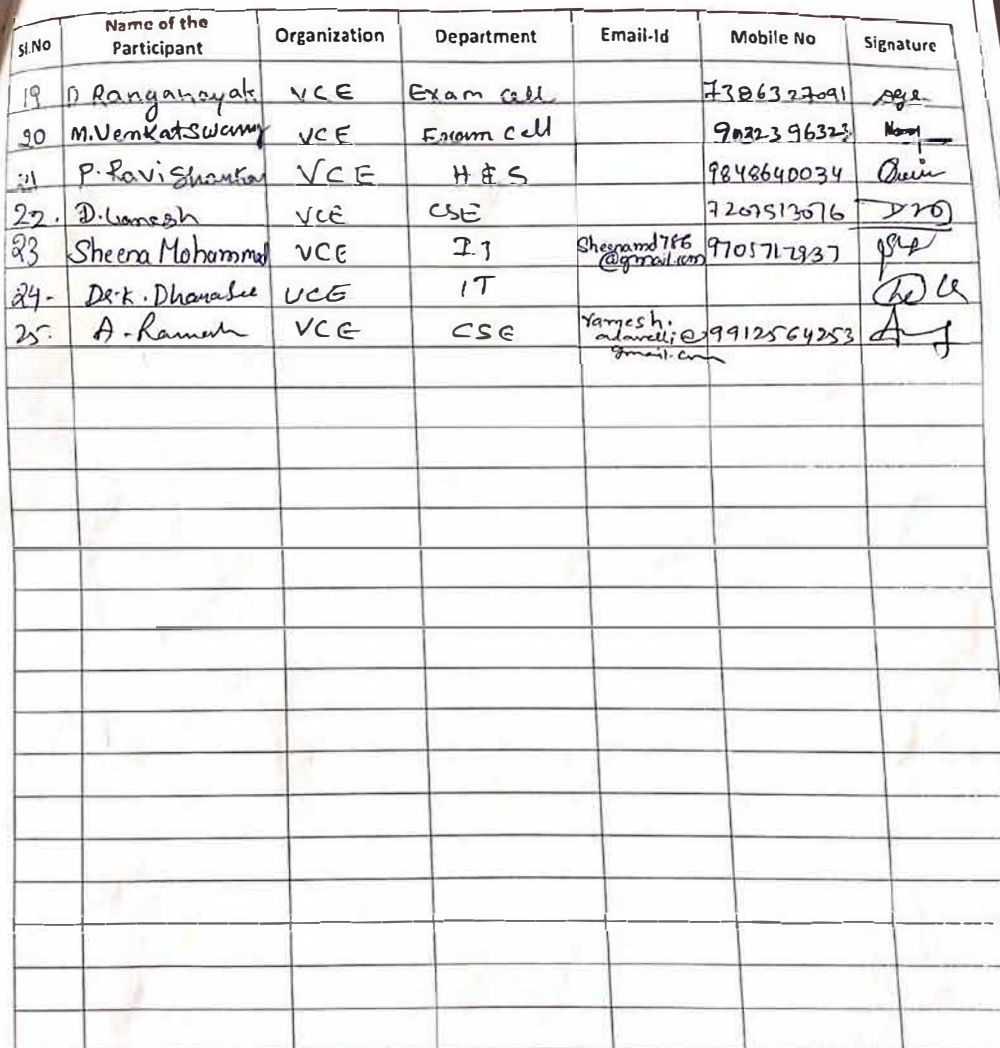 Sl.No Name of the Participant Organization Department Email-Id Mobile No Signature
19 D Ranganayak VCE Exam cell 7386327091
20 M.Venkat Swamy VCE Exam cell
21 P. Ravi Shankar VCE H & S 9848640034
22. D. VCE CSE 7207513076
23 Sheena Mohammad VCE IT Sheenamd786 9705717937
@gmail.com
24- Dr. K. Dhanasree VCE IT
25. A. Ramesh VCE CSE ramesh. 9912564253
adavelli@
gmail.com